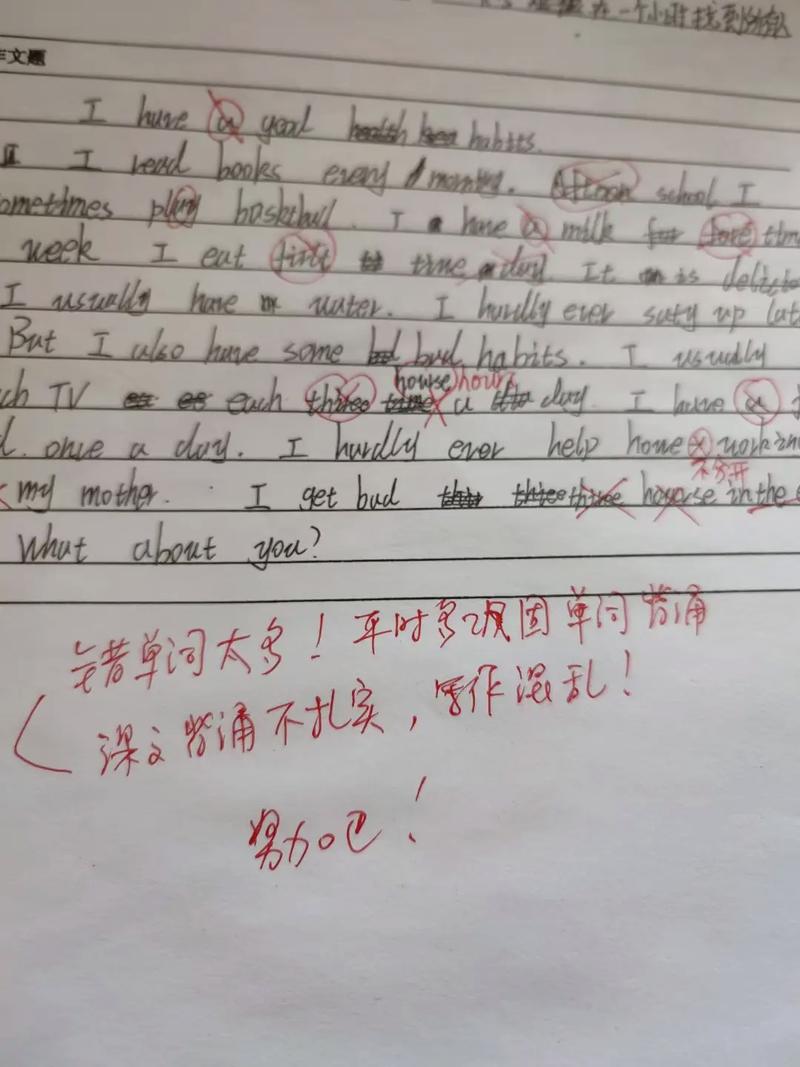 在一个小班找到
作文题
I have a good habits.
I read books every morning. Aftoon school I
ometimes play basketball. I have a milk four time
week I eat firit time a day. It is delicio
I usually have water. I hardly ever saty up lat
But I also have some bad habits. I usually
house hours
ch TV each three time a day. I have a
d. once a day. I hardly ever help home work
不分开
my mother. I get bad three house in the
What about you?
错单词太多！平时多巩固单词背诵
课文背诵不扎实，写作混乱！
努力吧！